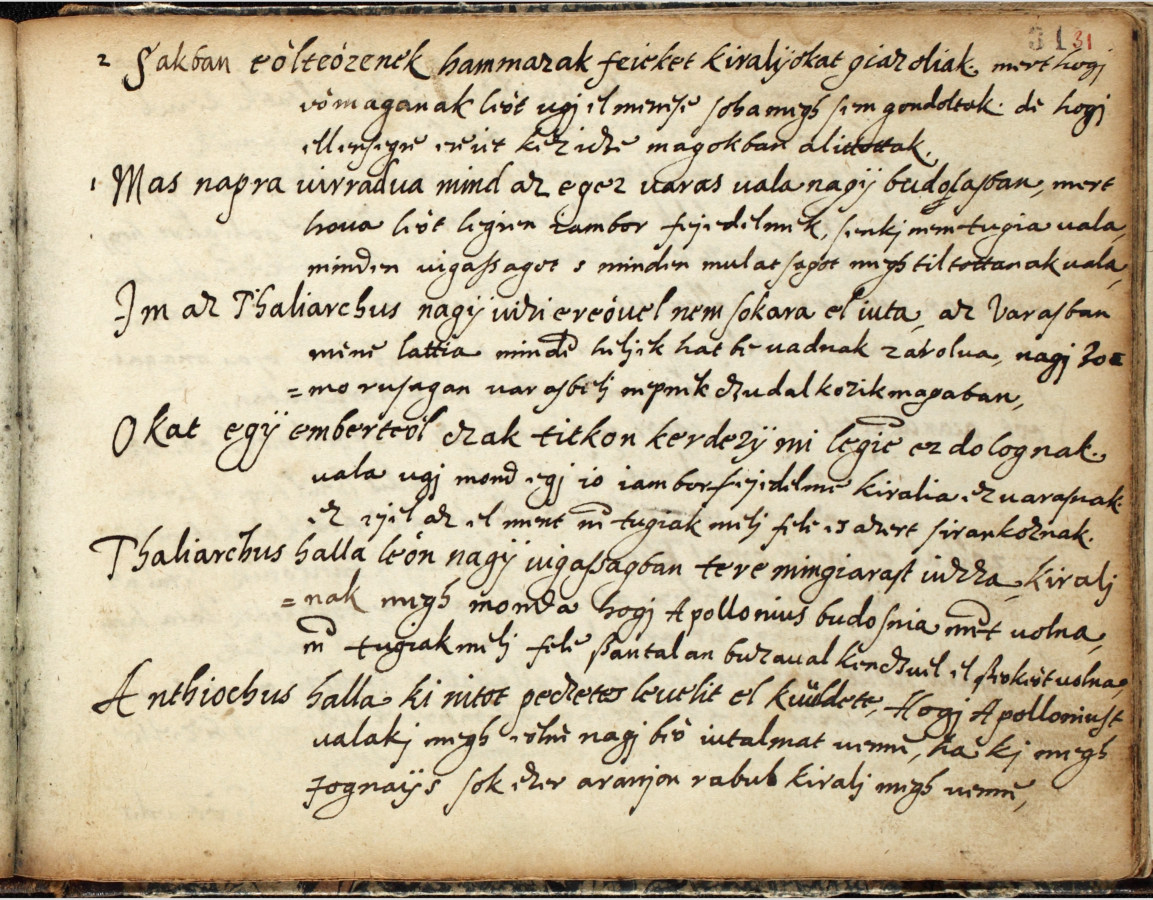 31 31
2 Sakban eólteózenek hammazak feieket kiralÿokat giazoliak. mert hogj
vó maganak leót ugj el menése soha megh sem gondoltak. de hogj
ellensegre ereit kezidze magokban alitottak.
1 Mas napra uirradua mind az egez uaras uala nagÿ budosasban, mert
houa leót legien iambor fejedelmek, senkj nem tugia uala,
minden uigassagot s minden mulatsagot megh tiltottanak uala,
Im az Thaliarchus nagÿ uizi ereóuel nem sokara el iuta, az Varasban
mene lattia minde heljek hat be uadnak zárolua, nagj zo
=morusagan uarasbelj nepnek czudalkozik magaban,
Okat egÿ emberteól czak titkon kerdezÿ mi legie ez dolognak.
uala ugj mond egj io iambor fejedelme kiralia ez uarasnak.
ez ejel az el ment nē tugiak melj fele es azert sirankoznak.
Thaliarchus halla león nagÿ uigassagban tere mingiarast uizza, kiralj
=nak megh monda hogj Apollonius budosnia ment uolna,
nē tugiak melj fele santalan buzaual kenczuel el szeokeót uolna,
Anthiochus halla ki nitot peczetes leuelit el küldete, Hogj Apolloniust
ualakj megh eólne nagj beó iutalmat uenne, ha kj megh
fognaÿs sok ezer aranjon rabul kiralj megh uenne,